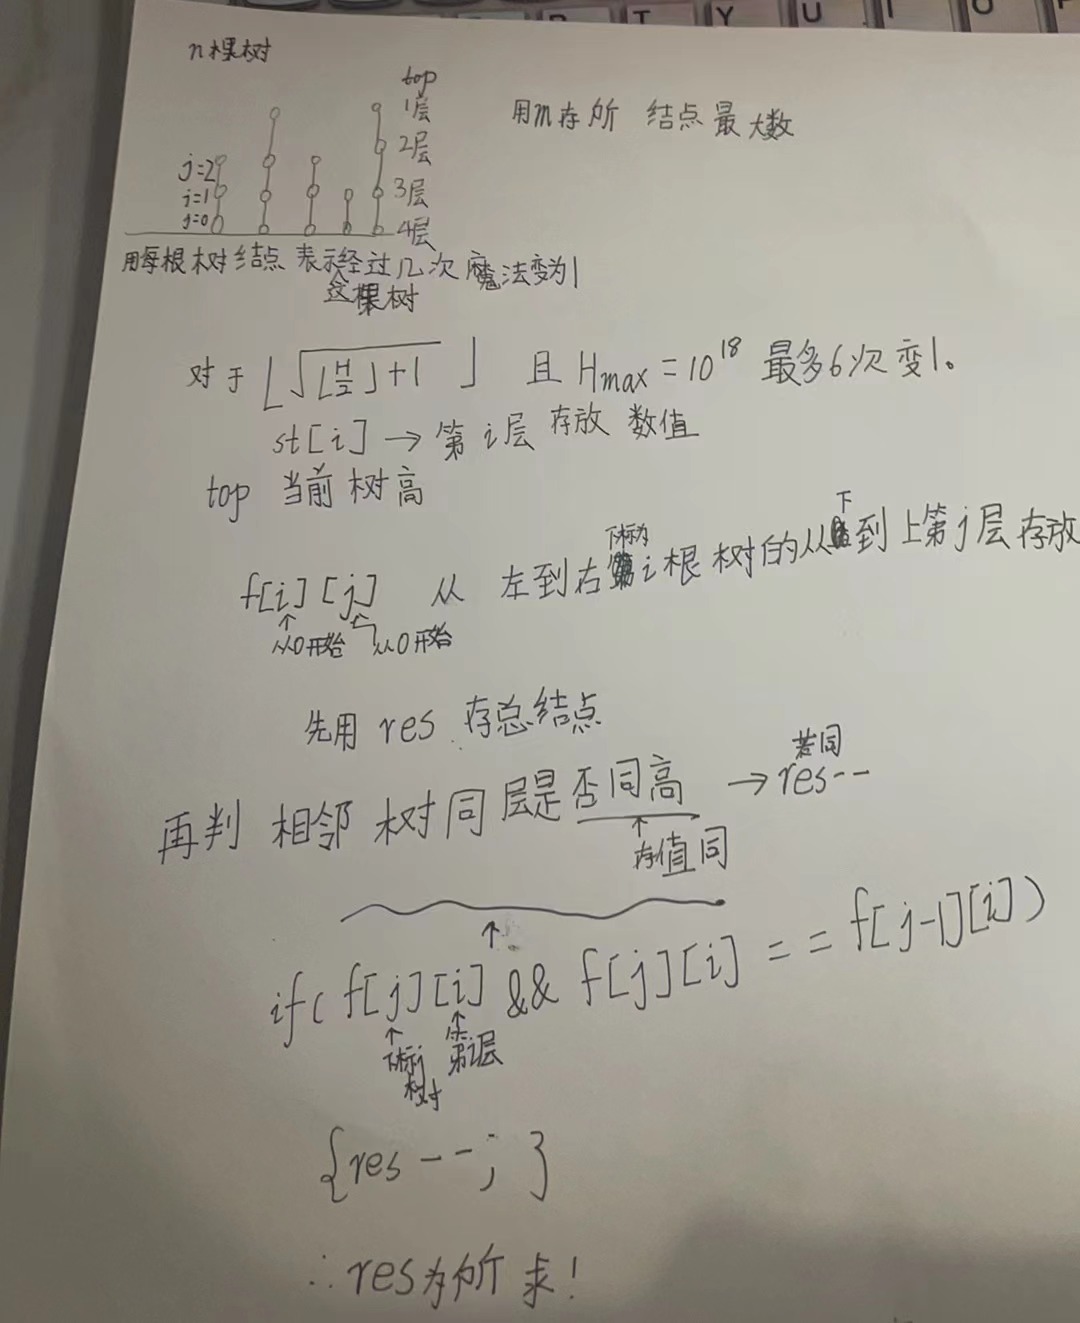 T Y U I O
n棵树
top
1层
2层
3层
4层
j=2
j=1
j=0
用m存所 结点最大数
用每根树结点 表示经过几次魔法变为1
这棵树
对于 ⌊√(⌊H/2⌋+1)⌋ 且 Hmax = 10^18 最多6次变1。
st[i] → 第i层 存放 数值
top 当前树高
f[i][j] 从 左到右下标为i根树的从下到上第j层存放
↑从0开始 从0开始
先用 res 存总结点
再判 相邻 树同层是否同高 → res--
若同
↑存值同
↑
if( f[j][i] && f[j][i] == f[j-1][i])
↑下标j树 ↑第i层
{res--; }
∴res为所求!